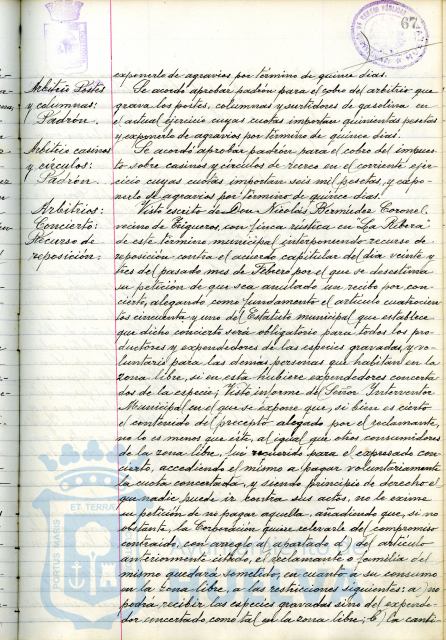 67
exponerlo de agravios por término de quince días.
Arbitrio Postes y columnas: Padrón.
Se acordó aprobar padrón para el cobro del arbitrio que
grava los postes, columnas y surtidores de gasolina en
el actual ejercicio cuyas cuotas importan quinientas pesetas
y exponerlo de agravios por término de quince días.
Arbitrio casinos y círculos: Padrón.
Se acordó aprobar padrón para el cobro del impues-
to sobre casinos y círculos de recreo en el corriente ejer-
cicio cuyas cuotas importan seis mil pesetas, y expo-
nerlo de agravios por término de quince días.
Arbitrios: Concierto: Recurso de reposición:
Visto escrito de Don Nicolás Bermúdez Coronel,
vecino de Trigueros, con finca rústica en "La Ribera"
de este término municipal interponiendo recurso de
reposición contra el acuerdo capitular del día veinte y
tres del pasado mes de Febrero por el que se desestima
su petición de que sea anulado un recibo por con-
cierto, alegando como fundamento el artículo cuatrocien-
tos cincuenta y uno del Estatuto municipal que establece
que dicho concierto será obligatorio para todos los pro-
ductores y expendedores de las especies gravadas, y vo-
luntario para las demás personas que habitan en la
zona libre, si en esta hubiere expendedores concerta-
dos de la especie; Visto informe del Señor Interventor
Municipal en el que se expone que, si bien es cierto
el contenido del precepto alegado por el reclamante,
no lo es menos que este, al igual que otros consumidores
de la zona libre, fué requerido para el expresado con-
cierto, accediendo el mismo a pagar voluntariamente
la cuota concertada, y siendo principio de derecho el
que nadie puede ir contra sus actos, no le exime
su petición de no pagar aquella, añadiendo que, si no
obstante, la Corporación quiere relevarle del compromiso
contraido, con arreglo al apartado d) del artículo
anteriormente citado, el reclamante o familia del
mismo quedará sometido, en cuanto a su consumo
en la zona libre, a las restricciones siguientes: a) no
podrá recibir las especies gravadas sino del expende-
dor encertado como tal en la zona libre; b) la canti-
PORTUS MARIS ET TERRAE